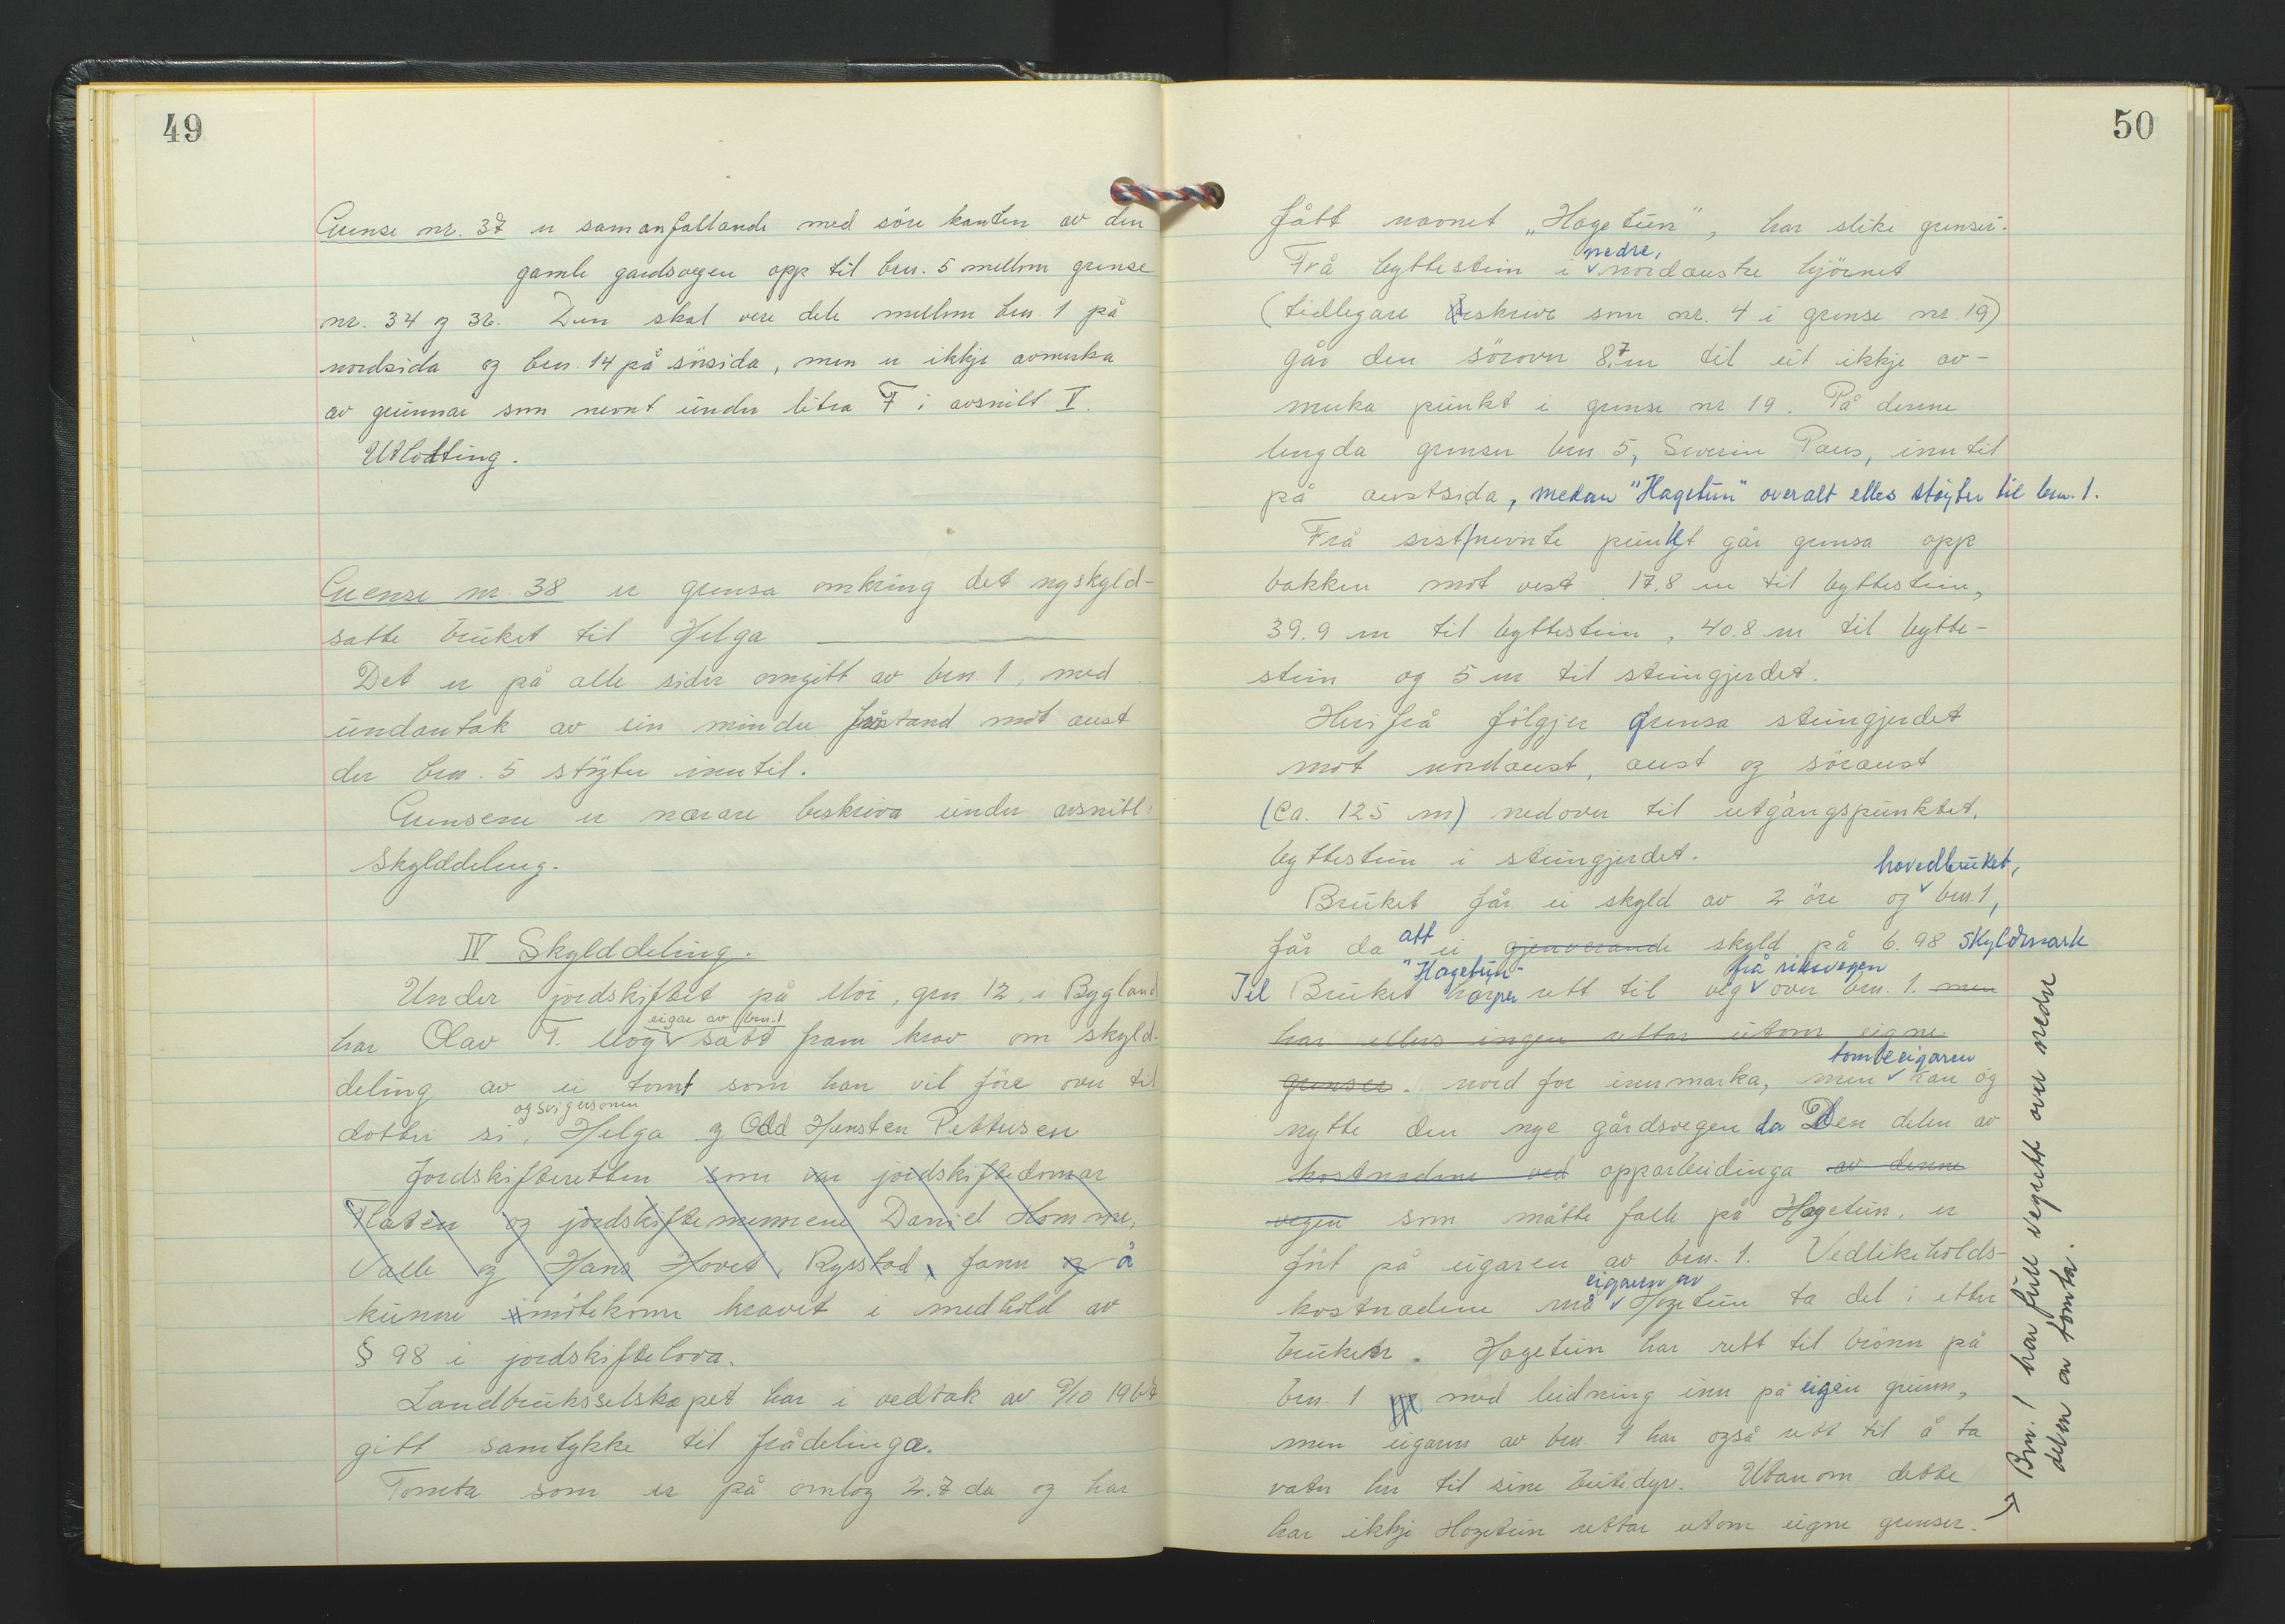 49
Grense nr. 37 er samanfallande med söre kanten av den
gamle gardsvegen opp til brn. 5 mellom grense
nr. 34 og 36. Den skal vere dele mellom brn. 1 på
nordsida og brn. 14 på sörsida, men er ikkje avmerka
av grunnar som nevnt under litra F i avsnitt V.
Utlodting.
Grense nr. 38 er grensa omkring det nyskyld-
satte bruket til Helga
Det er på alle sider omgitt av brn. 1, med
undantak av ein mindre fråstand mot aust
der brn. 5 stöyter inntil.
Grensene er nærare beskriva under avsnitt:
Skylddeling.
IV Skylddeling.
Under jordskiftet på Moi, grn. 12, i Bygland
eigar av brn. 1
har Olav T. Moy satt fram krav om skyld-
deling av ei tomt som han vil före over til
og svigersonen
dotter si, Helga og Odd Hersten Pettersen
Jordskifteretten som var jordskiftedomar
Flaten og jordskiftemennene Daniel Homme,
Valle og Hans Hovet, Rysstad, fann og å
kunne imötekome kravet i medhold av
§ 98 i jordskiftelova.
Landbruksselskapet har i vedtak av 9/10 1967
gitt samtykke til frådelinga.
Tomta som er på omlag 2.7 da og har
50
fått navnet „Hagetun", har slike grenser.
nedre,
Frå byttestein i nordaustre hjörnet
(tidlegare beskrive som nr. 4 i grense nr. 19)
går den sörover 8,7 m til eit ikkje av-
merka punkt i grense nr. 19. På denne
lengda grenser brn. 5, Severin Paus, inntil
på austsida, medan "Hagetun" overalt elles stöyter til brn. 1.
Frå sistnevnte punkt går grensa opp
bakken mot vest 17.8 m til byttestein,
39.9 m til byttestein, 40.8 m til bytte-
stein og 5 m til steingjerdet.
Herifrå fölgjer grensa steingjerdet
mot nordaust, aust og söraust
(Ca. 125 m) nedover til utgangspunktet,
byttestein i steingjerdet.
hovedbruket,
Bruket får ei skyld av 2 öre og brn. 1,
att
får da ei gjenverande skyld på 6.98 skyldmark
"Hagetun" frå riksvegen
Til Bruket rett til veg over brn. 1. men
har ellers ingen rettar utom eigne
tomteeigaren
grenser. nord for innmarka, men kan og
nytte den nye gårdsvegen da Den delen av
kostnadene ved opparbeidinga av denne
vegen som måtte falle på Hagetun, er
fört på eigaren av brn. 1. Vedlikeholds-
eigaren av
kostnadene må Hagetun ta del i etter
bruken. Hagetun har rett til brönn på
brn. 1 med leidning inn på eigen grunn,
men eigaren av brn. 1 har også rett til å ta
vatn her til sine beitedyr. Utanom dette
har ikkje Hagetun rettar utom eigne grenser.
Brn. 1 har full vegrett over nedre
delen av tomta.